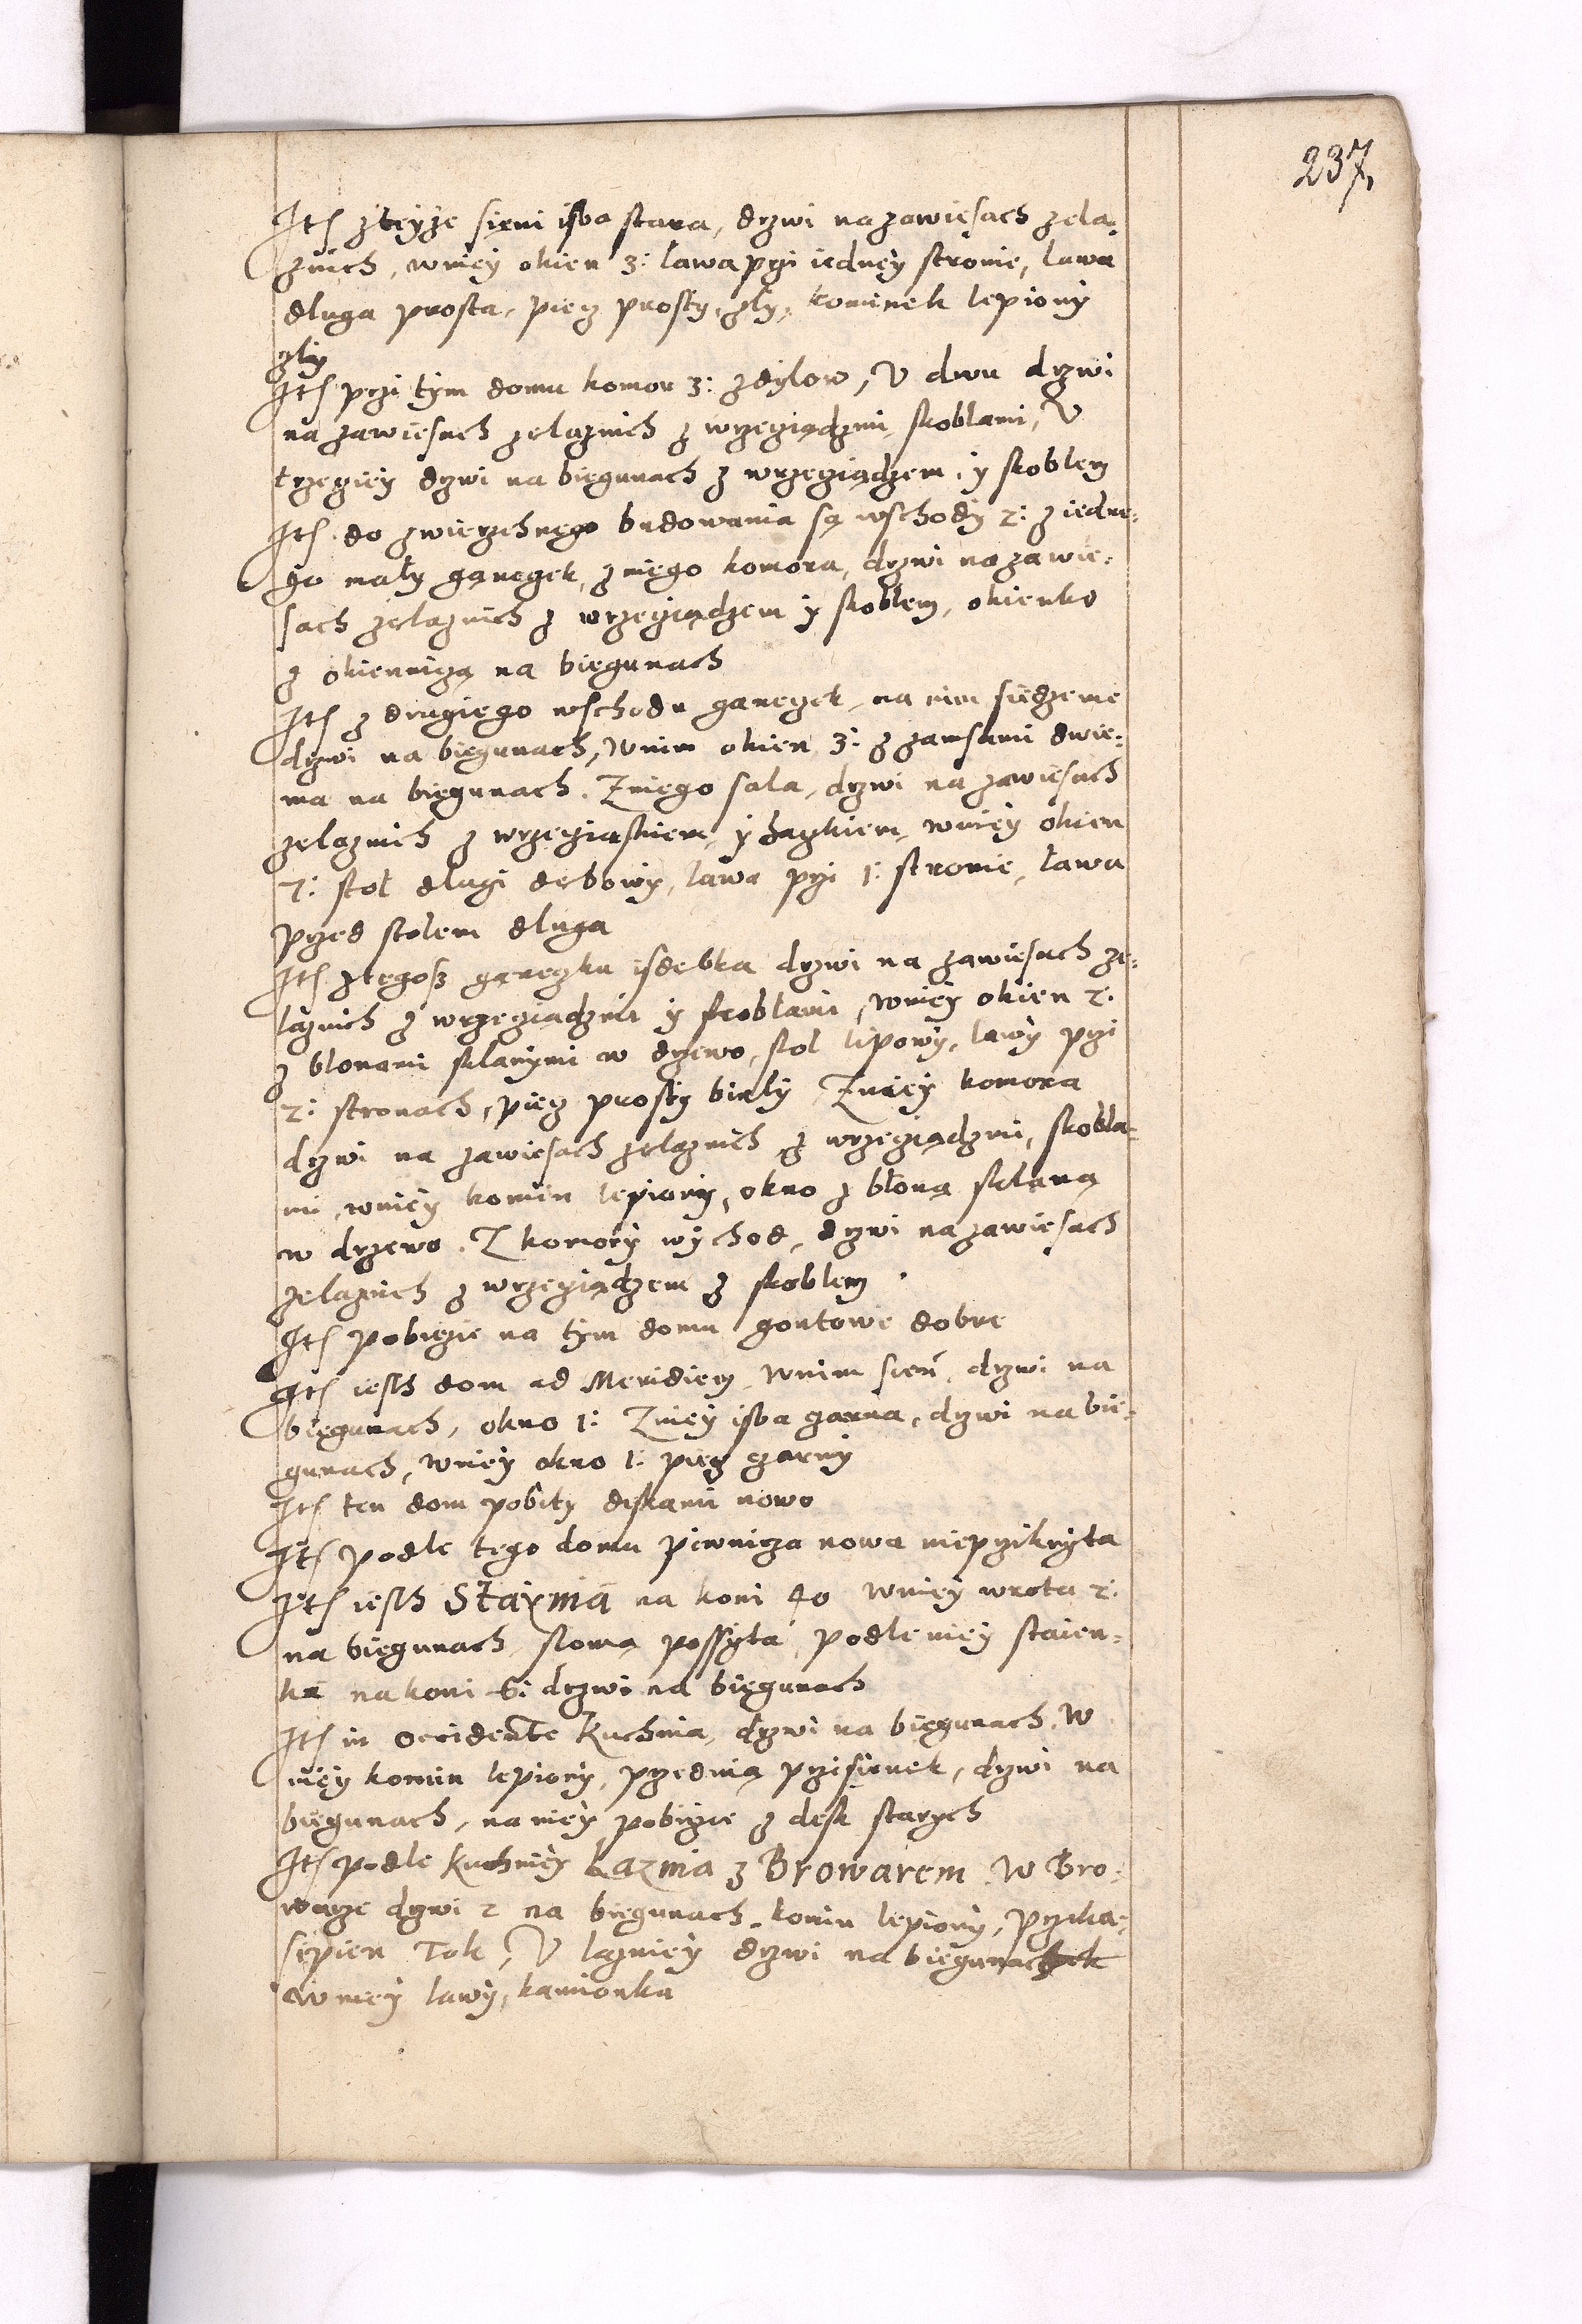 237,
Itē zteyze sieni isba stara, drzwi na zawiesach zela,
znich, wniey okien 3: ława przi iedney stronie, ława
dluga prosta, piecz prosty, zly, kominek lepiony
zly
Itē przi tym domu komor 3: z dylow, V dwu drzwi
na zawiesach zelaznich z wrzeciądzmi, skoblami, V
trzeciey drzwi na biegunach z wrzeciądzem, y skoblem
Itē do zwierzchnego budowania są wschody 2: z iedne,
go mały ganeczek, z niego komora, drzwi na zawie,
sach zelaznich z wrzeciądzem y skoblem, okienko
z okiennicą na biegunach
Itē z drugiego wschodu ganeczek, na nim siedzenie
drzwi na biegunach, w nim okien 3: z zamsami dwie,
ma na biegunach. Z niego sala, drzwi na zawiesach
zelaznich z wrzeciąskiem, y haczkiem, wniey okien
7: stoł dlugi debowy, lawa przi 1: stronie, ława
przed stolem dluga
Itē z tegosz ganeczku isdebka drzwi na zawiesach ze,
laznich z wrzeciądzmi y skoblami, wniey okien 2:
z blonami sklanymi w drzewo, stol lipowy, lawy przi
2: stronach, piecz prosty biały Zniey komora
drzwi na zawiesach zelaznich z wrzeciądzmi, skobla,
mi, wniey komin lepiony, okno z błoną sklaną
w drzewo. Z komory wychod, drzwi na zawiesach
zelaznich z wrzeciądzem z skoblem.
Itē pobicie na tym domu gontowe dobre
Itē iesth dom ad Meridiem, wnim sień, drzwi na
biegunach, okno 1: Zniey isba czarna, drzwi na bie,
gunach, wniey okno 1: piecz czarny
Itē ten dom pobity deskami nowo
Itē podle tego domu piwnicza nowa nieprzikryta
Itē iesth Staynia na koni 40 wniey wrota 2:
na biegunach słomą possyta, podle niey staien,
ka na koni 6: drzwi na biegunach
Itē in occidente Kuchnia, drzwi na biegunach. W
niey komin lepiony, przednią przisionek, drzwi na
biegunach, na niey pobicie z desk starych
Itē podle kuchniey Łaznia z Browarem. W Bro,
warze drzwi 2 na biegunach, komin lepiony,
Tok, V lazniey drzwi na biegunach
w niey lawy, kamionka